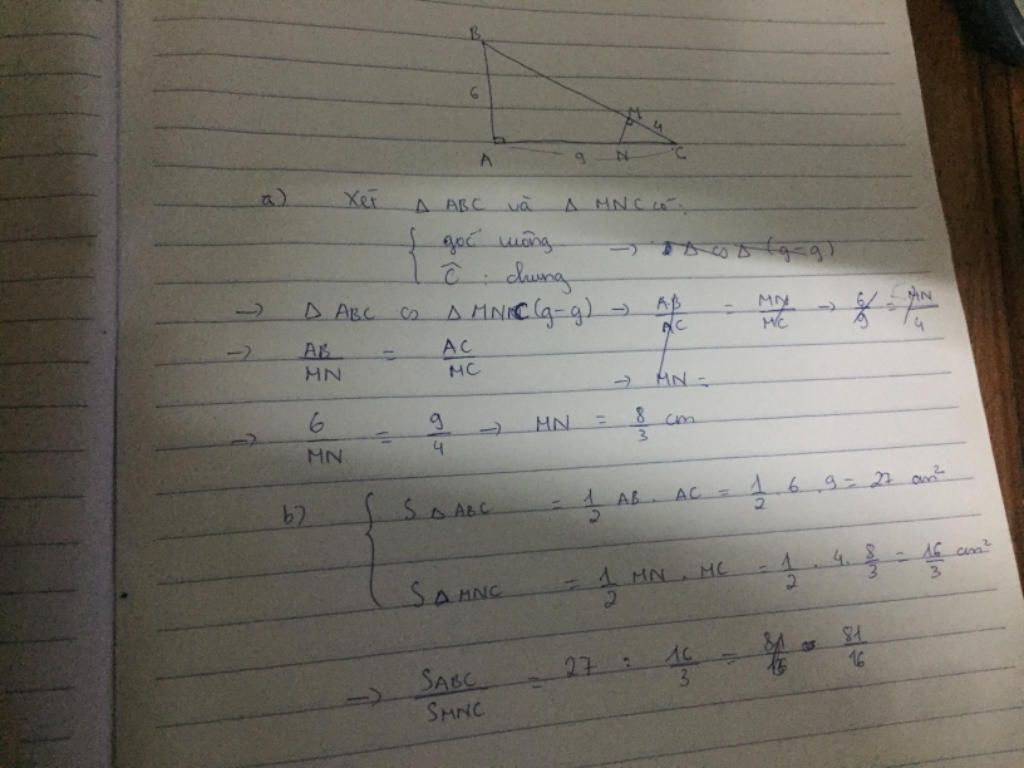 B
6
M
4
A 9 N C
a) Xét Δ ABC và Δ MNC có:
góc vuông → Δ ∽ Δ (g-g)
Ĉ : chung
→ Δ ABC ∽ Δ MNC (g-g) → AB/AC = MN/MC → 6/9 = MN/4
→ AB/MN = AC/MC
→ MN =
→ 6/MN = 9/4 → MN = 8/3 cm
b) S Δ ABC = 1/2 AB . AC = 1/2 . 6 . 9 = 27 cm²
S Δ MNC = 1/2 MN . MC = 1/2 . 4 . 8/3 = 16/3 cm²
→ SABC/SMNC = 27 : 16/3 = 81/16 = 81/16